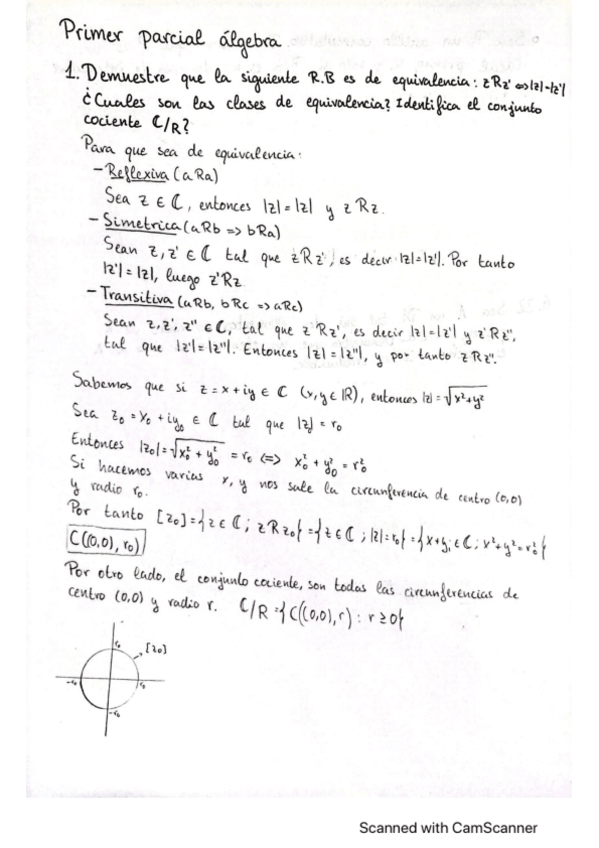 Primer parcial álgebra
1. Demuestre que la siguiente R.B es de equivalencia: zRz' <=> |z|=|z'|
¿Cuales son las clases de equivalencia? Identifica el conjunto
cociente ℂ/R?
Para que sea de equivalencia:
- Reflexiva (aRa)
Sea z ∈ ℂ, entonces |z| = |z| y zRz.
- Simetrica (aRb => bRa)
Sean z, z' ∈ ℂ tal que zRz', es decir |z|=|z'|. Por tanto
|z'| = |z|, luego z'Rz
- Transitiva (aRb, bRc => aRc)
Sean z, z', z'' ∈ ℂ, tal que z'Rz', es decir |z|=|z'| y z'Rz'',
tal que |z'|=|z''|. Entonces |z|=|z''|, y por tanto zRz''.
Sabemos que si z = x+iy ∈ ℂ (x,y ∈ ℝ), entonces |z| = √x²+y²
Sea z₀ = x₀ + iy₀ ∈ ℂ tal que |z₀| = r₀
Entonces |z₀| = √x₀² + y₀² = r₀ <=> x₀² + y₀² = r₀²
Si hacemos varias x, y nos sale la circunferencia de centro (0,0)
y radio r₀.
Por tanto [z₀] = {z ∈ ℂ ; zRz₀} = {z ∈ ℂ ; |z| = r₀} = {x+yi ∈ ℂ ; x²+y² = r₀²}
C((0,0), r₀)
Por otro lado, el conjunto cociente, son todas las circunferencias de
centro (0,0) y radio r. ℂ/R = {C((0,0), r) : r ≥ 0}
r₀
[z₀]
-r₀
r₀
-r₀
Scanned with CamScanner